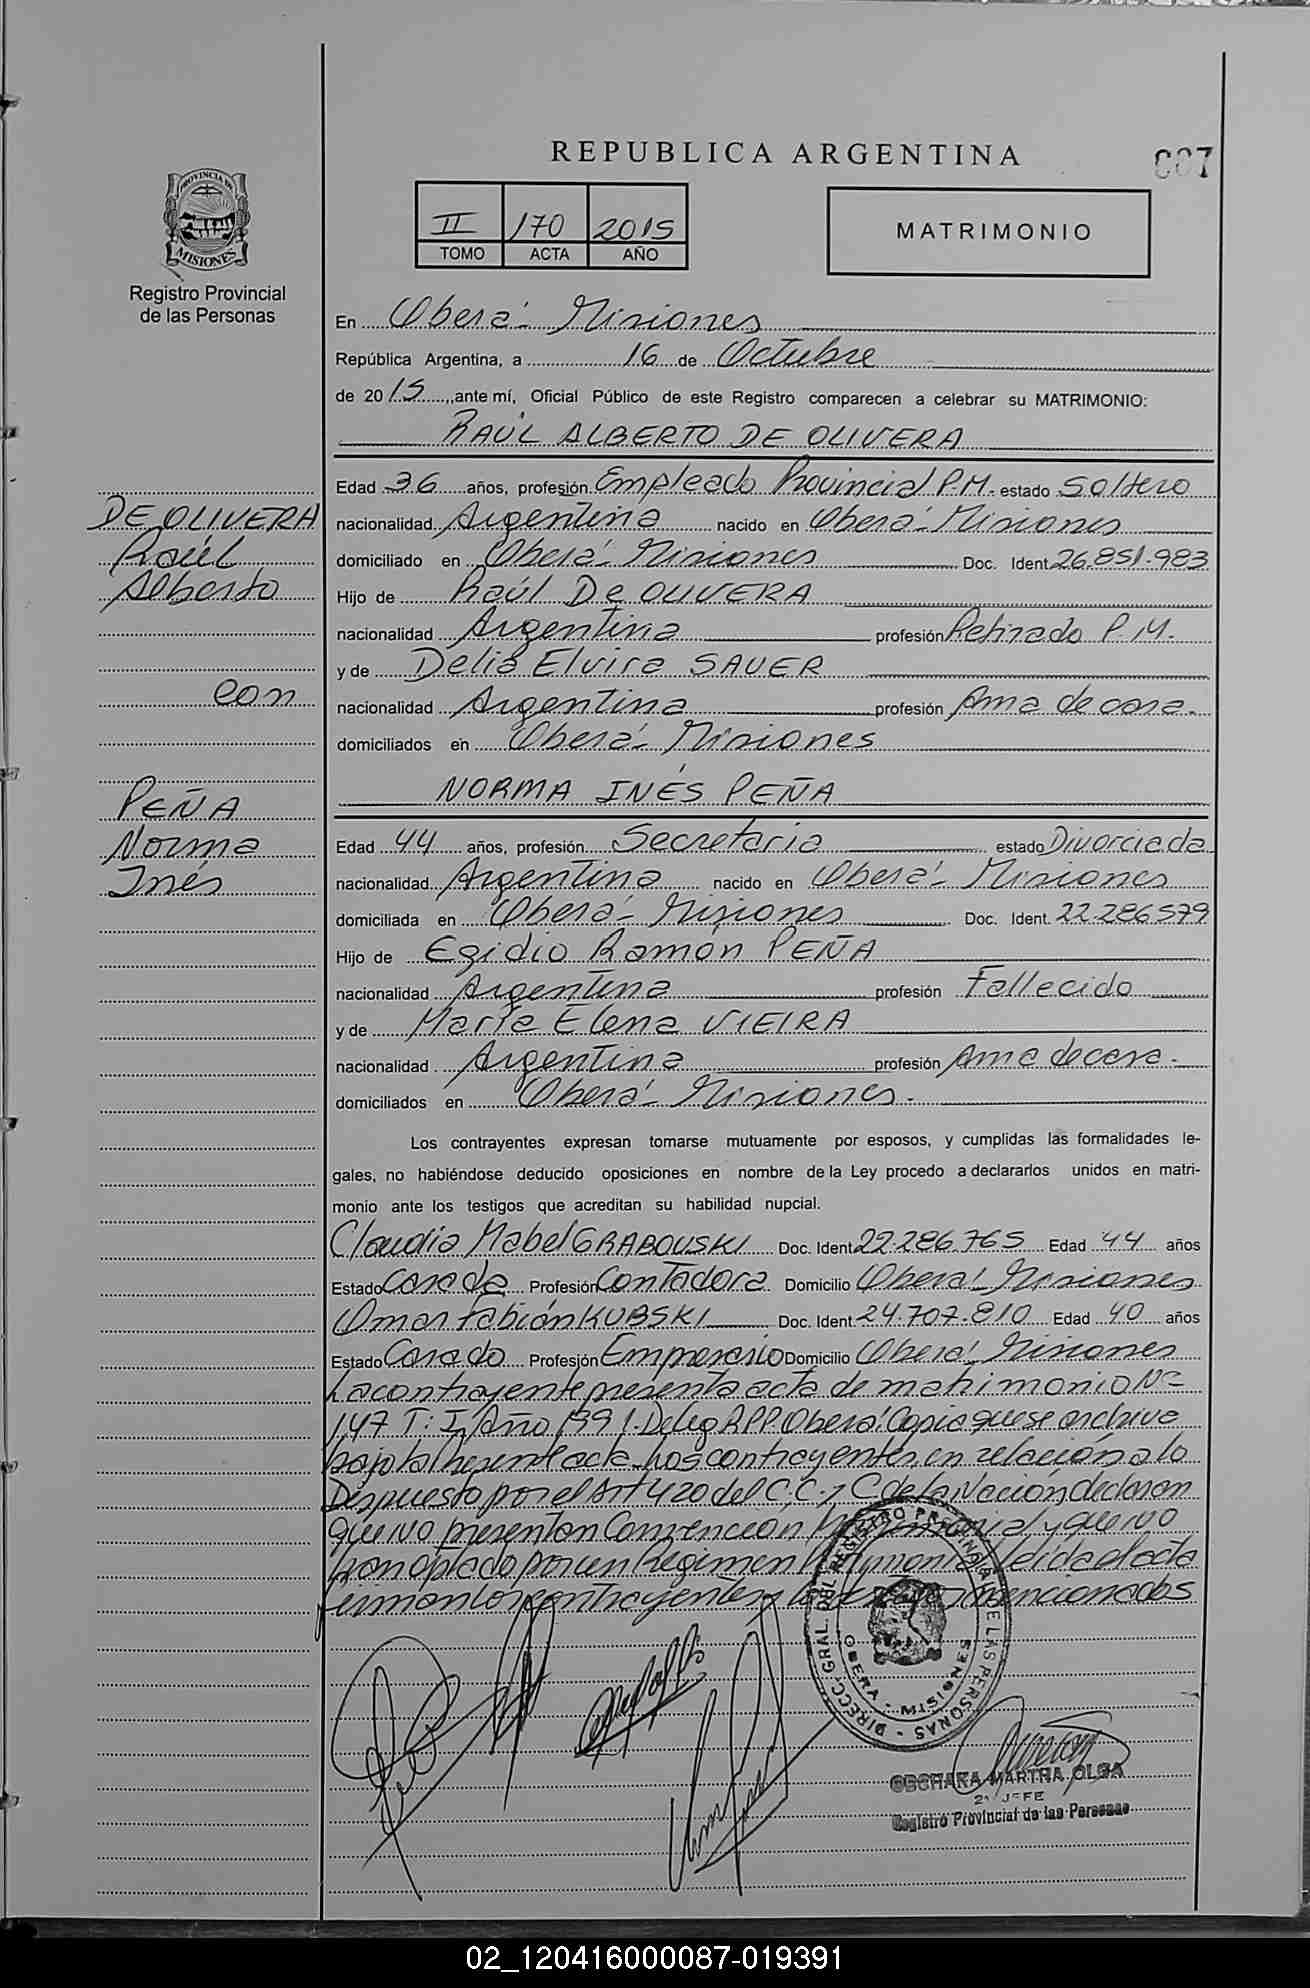 REPUBLICA ARGENTINA
007
PROVINCIA DE
MISIONES
Registro Provincial
de las Personas
II 170 2015
TOMO ACTA AÑO
MATRIMONIO
En Oberá - Misiones
República Argentina, a 16 de Octubre
de 2015, ante mí, Oficial Público de este Registro comparecen a celebrar su MATRIMONIO:
RAÚL ALBERTO DE OLIVERA
Edad 36 años, profesión Empleado Provincial P.M. estado Soltero
nacionalidad Argentina nacido en Oberá - Misiones
domiciliado en Oberá - Misiones Doc. Ident. 26.851.983
Hijo de Raúl De OLIVERA
nacionalidad Argentina profesión Retirado P.M.
y de Delia Elvira SAUER
nacionalidad Argentina profesión Ama de casa.
domiciliados en Oberá - Misiones
NORMA INÉS PEÑA
Edad 44 años, profesión Secretaria estado Divorciada
nacionalidad Argentina nacido en Oberá - Misiones
domiciliada en Oberá - Misiones Doc. Ident. 22.286.579
Hijo de Egidio Ramón PEÑA
nacionalidad Argentina profesión Fallecido
y de María Elena VIEIRA
nacionalidad Argentina profesión Ama de casa.
domiciliados en Oberá - Misiones.
DE OLIVERA
Raúl
Alberto
con
PEÑA
Norma
Inés
Los contrayentes expresan tomarse mutuamente por esposos, y cumplidas las formalidades le-
gales, no habiéndose deducido oposiciones en nombre de la Ley procedo a declararlos unidos en matri-
monio ante los testigos que acreditan su habilidad nupcial.
Claudia Mabel GRABOUSKI Doc. Ident. 22.286.765 Edad 44 años
Estado Casada Profesión Contadora Domicilio Oberá - Misiones
Omar Fabián KUBSKI Doc. Ident. 24.707.810 Edad 40 años
Estado Casado Profesión Empresario Domicilio Oberá - Misiones
La contrayente presenta acta de matrimonio Nº
147 T: I Año 1991. Deleg R.P.P. Oberá. Copia que se archiva
bajo la presente acta. Los contrayentes en relación a lo
Dispuesto por el Art 420 del C.C. y C de la Nación, declaran
que NO presentan Convención y que NO
han optado por un Régimen Leída el acta
firman los contrayentes y mencionados
DIRECC. GRAL. DEL REGISTRO PROVINCIAL DE LAS PERSONAS
OBERA - MISIONES
MARTHA OLGA
2º JEFE
Registro Provincial de las Personas
02_120416000087-019391